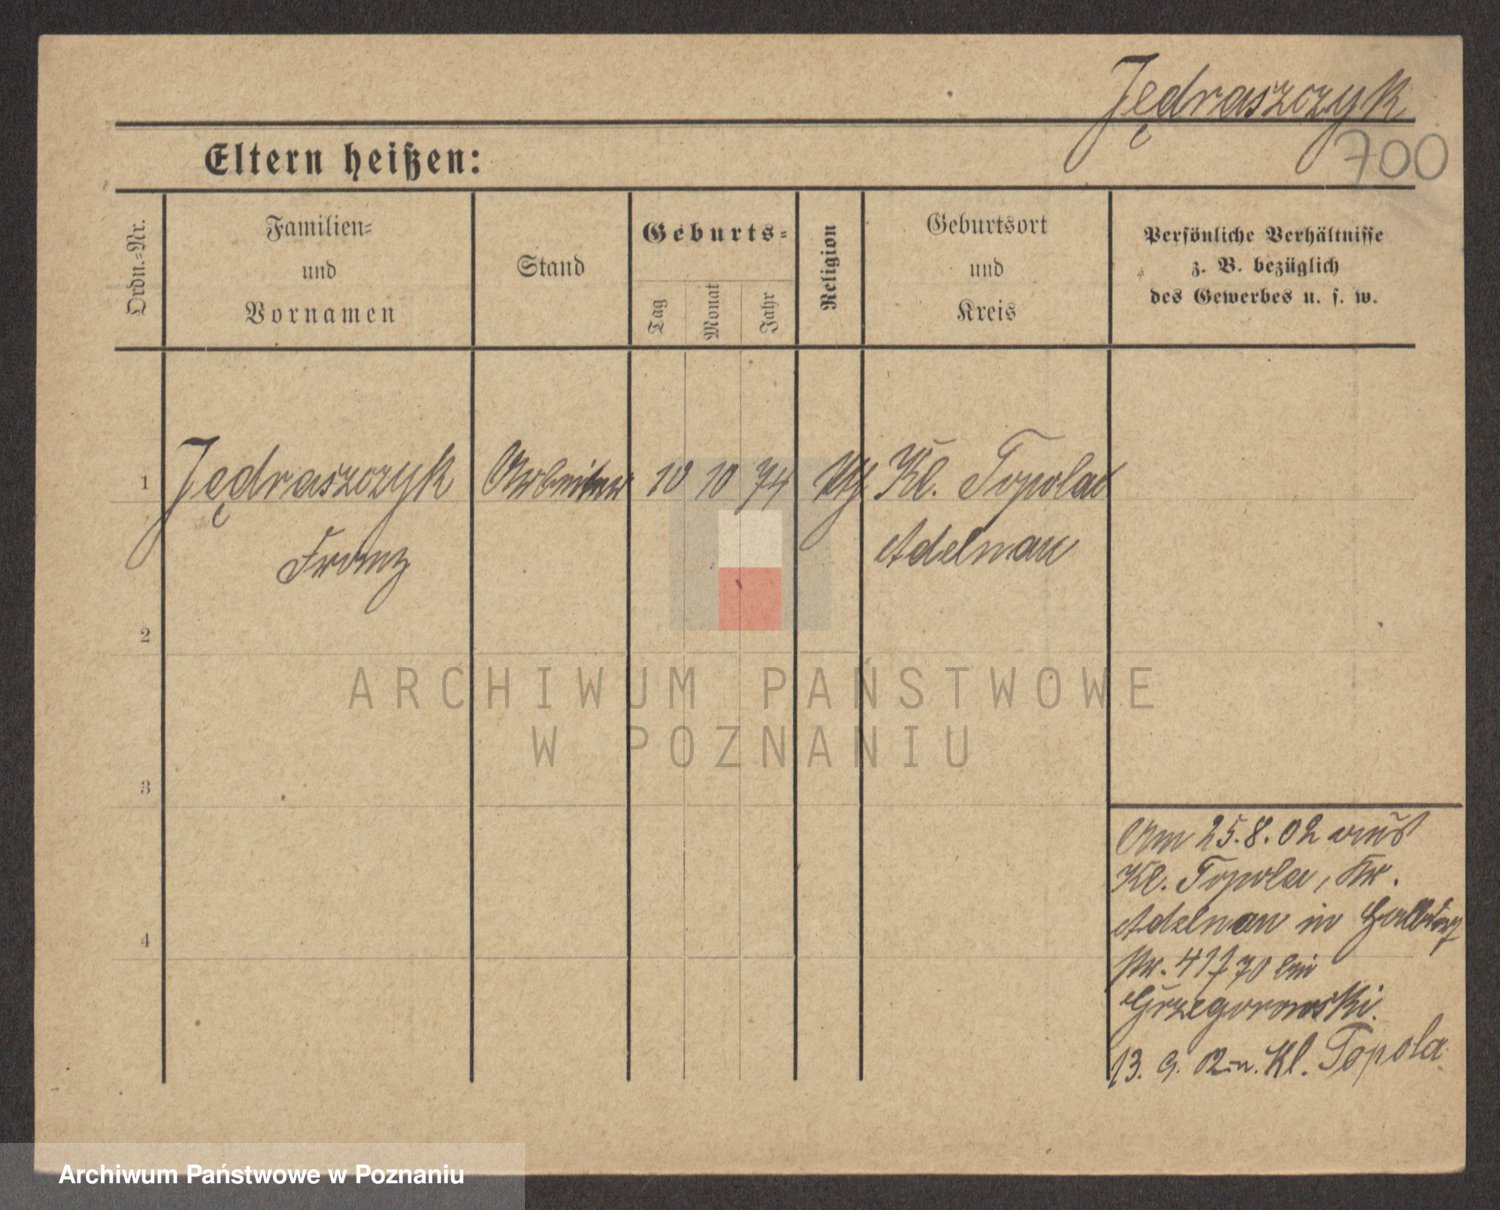 Jędraszczyk
700
Eltern heißen:
Ordn.-Nr.
Familien-
und
Vornamen
Stand
Geburts-
Tag
Monat
Jahr
Religion
Geburtsort
und
Kreis
Persönliche Verhältnisse
z. B. bezüglich
des Gewerbes u. s. w.
1 Jędraszczyk Arbeiter 10 10 74 Kl. Topola
Franz Adelnau
2
3
4
ARCHIWUM PAŃSTWOWE
W POZNANIU
Am 25.8.02 aus
Kl. Topola, Kr.
Adelnau in
Nr. bei
Grzegorowski.
13. 9. 02 n. Kl. Topola
Archiwum Państwowe w Poznaniu